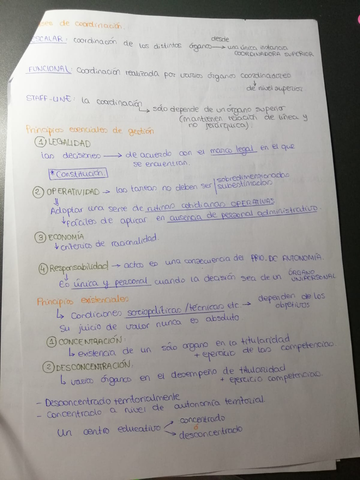 de coordinación:
ESCALAR: coordinación de los distintos órganos → desde una única instancia COORDINADORA SUPERIOR
FUNCIONAL: Coordinación realizada por varios órganos coordinadores
↳ de nivel superior
STAFF-LINE: la coordinación → sólo depende de un órgano superior
(mantienen relación de línea y no jerárquica)
Principios esenciales de gestión
① LEGALIDAD
Las decisiones → de acuerdo con el marco legal, en el que
se encuentran.
* Constitución
② OPERATIVIDAD → las tareas no deber ser
Adoptar una serie de rutinas cotidianas operativas
↳ fáciles de aplicar en ausencia de personal administrativo.
③ ECONOMÍA
↳ criterios de racionalidad.
④ Responsabilidad → actos es una consecuencia de PPIO. DE AUTONOMÍA.
Es única y personal cuando la decisión sea de un ÓRGANO UNIPERSONAL
Principios existenciales
↳ Condiciones sociopolíticas / técnicas etc → dependen de los objetivos
Su juicio de valor nunca es absoluto
① CONCENTRACIÓN.
↳ existencia de un sólo órgano en la titularidad
+ ejercicio de las competencias
② DESCONCENTRACIÓN.
↳ varios órganos en el desempeño de titularidad
+ ejercicio competencias.
- Desconcentrado territorialmente
- Concentrado a nivel de autonomía territorial.
Un centro educativo
concentrado
desconcentrado